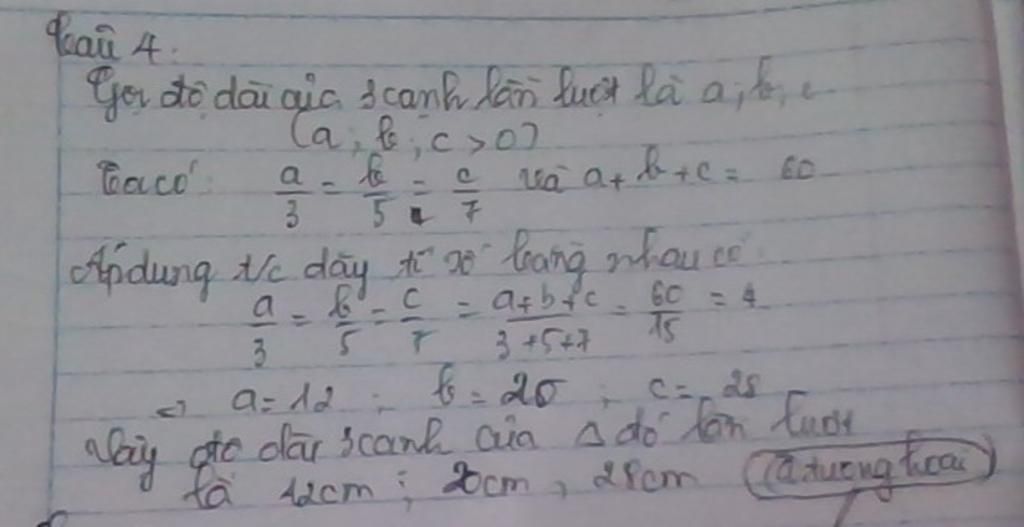 Câu 4:
Gọi độ dài của 3 cạnh lần lượt là a, b, c
(a, b, c > 0)
Ta có: a/3 = b/5 = c/7 và a + b + c = 60
Áp dụng t/c dãy tỉ số bằng nhau có:
a/3 = b/5 = c/7 = (a+b+c)/(3+5+7) = 60/15 = 4
=> a = 12 ; b = 20 ; c = 28
Vậy độ dài 3 cạnh của Δ đó lần lượt
là 12cm ; 20cm , 28cm